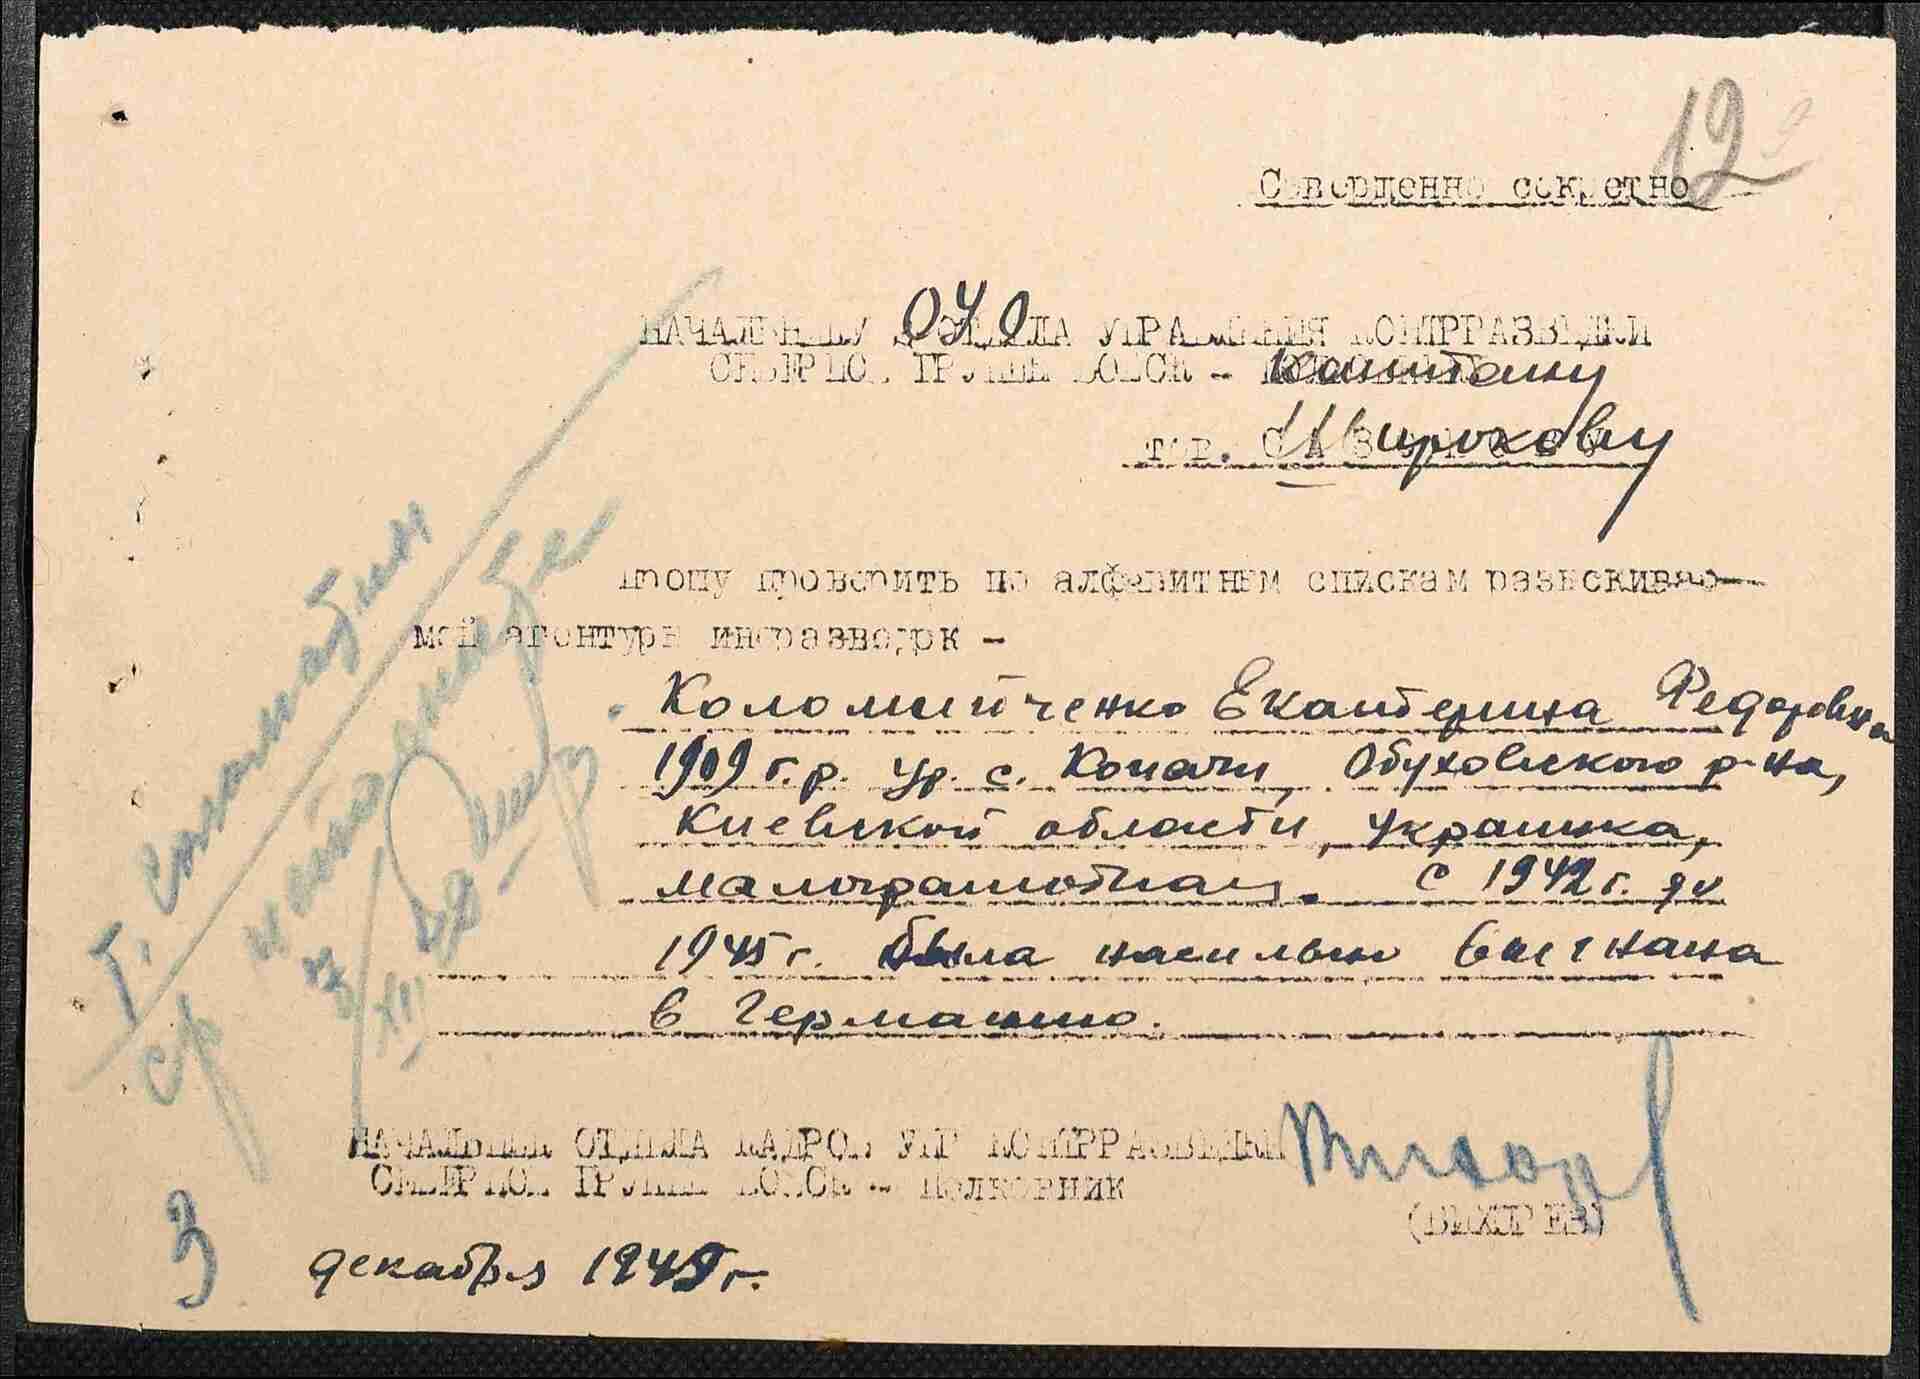 12
Совершенно секретно
НАЧАЛЬНИКУ ОУО ОТДЕЛА УПРАВЛЕНИЯ КОНТРРАЗВЕДКИ
СЕВЕРНОЙ ГРУППЫ ВОЙСК - капитану
тов. Широкову
Прошу проверить по алфавитным спискам разыскивае-
мой агентуры иноразведок -
Коломийченко Екатерина Федоровна
1909 г.р. ур. с. Копачи, Обуховского р-на,
Киевской области, украинка,
малограмотная. С 1942 г. до
1945 г. была насильно выгнана
в Германию.
НАЧАЛЬНИК ОТДЕЛА КАДРОВ УПР КОНТРРАЗВЕДКИ
СЕВЕРНОЙ ГРУППЫ ВОЙСК - ПОЛКОВНИК
(ВИХРЕВ)
3 декабря 1945 г.